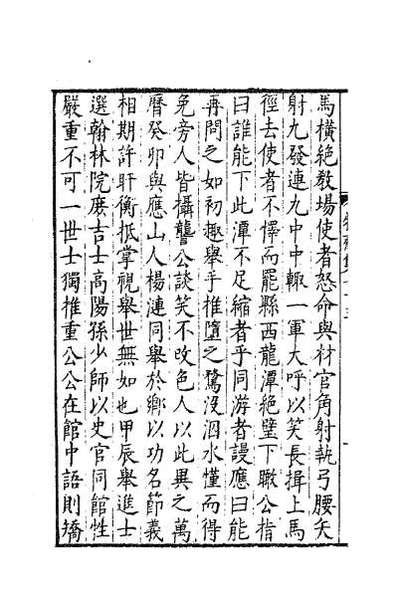 馬橫絶教場使者怒命與材官角射執弓腰矢
射九發連九中中輙一軍大呼以笑長揖上馬
徑去使者不懌而罷縣西龍潭絶壁下瞰公指
曰誰能下此潭不足縮者乎同游者謾應曰能
再問之如初趣舉手推墮之驚没泅水僅而得
免旁人皆攝讋公談笑不改色人以此異之萬
曆癸卯與應山人楊漣同舉於鄉以功名節義
相期許盱衡抵掌視舉世無如也甲辰舉進士
選翰林院庻吉士高陽孫少師以史官同館性
嚴重不可一世士獨推重公公在館中語則矯